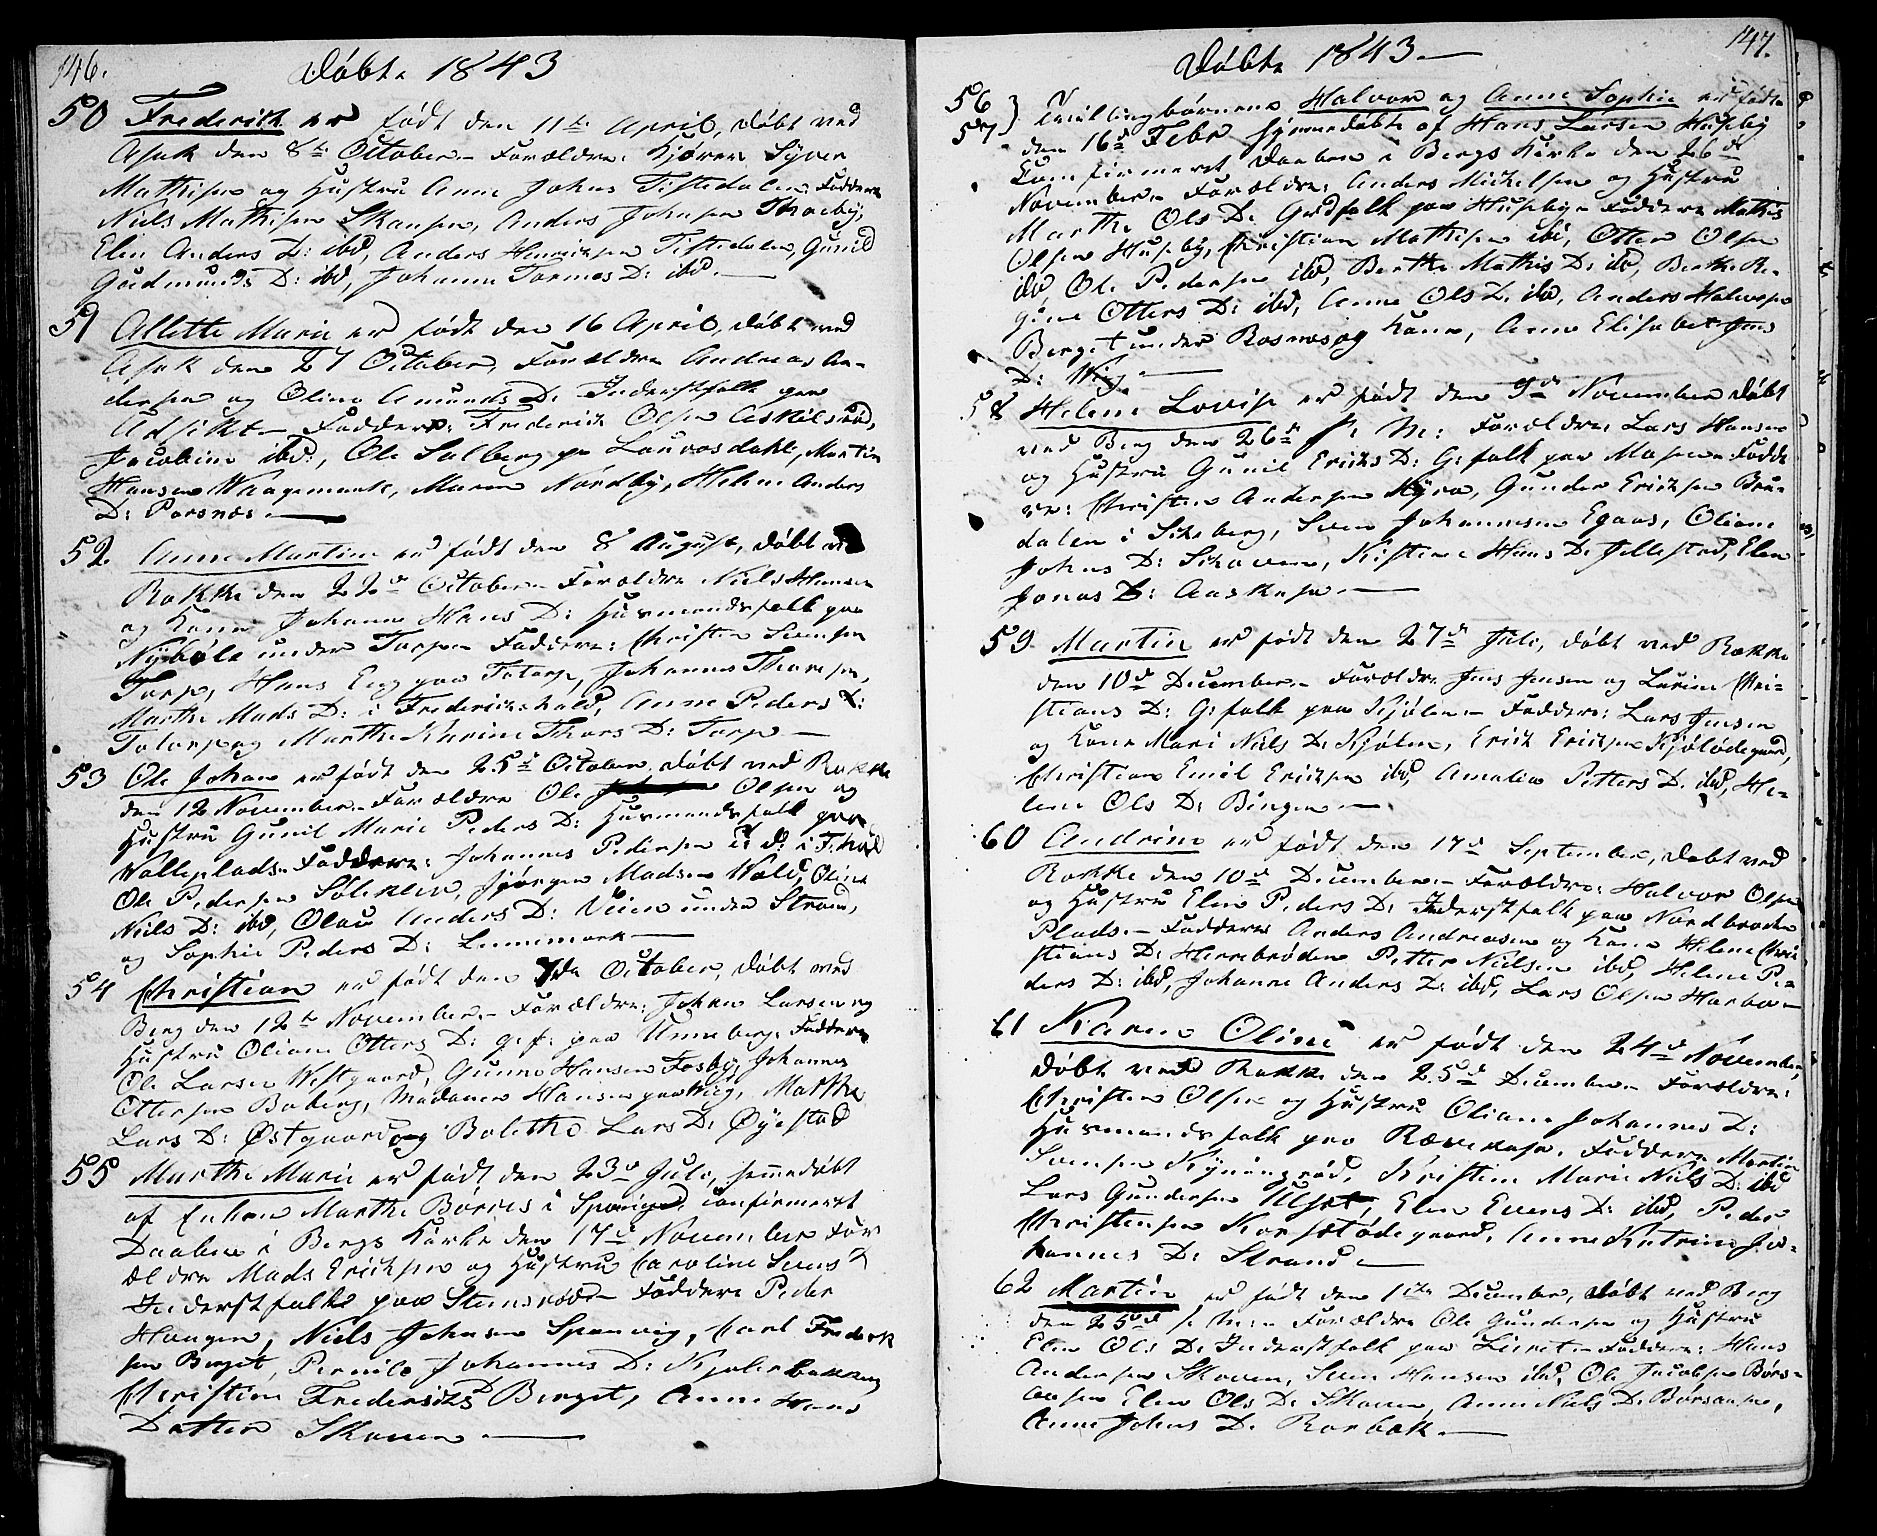 146.
Døbte 1843
50 Frederich er født den 11te April, døbt ved
Asak den 8te October. Forældre: Kjører Syver
Mathisen og Hustru Anne Johns Tistedalen Faddere
Niels Mathisen Skansen, Anders Johnsen Thoeby,
Elen Anders D: ibd, Anders Henriksen Tistedalen, Gunild
Gudmunds D: ibd, Johanne Tormos D: ibd.
51 Allette Marie er født den 16 April, døbt ved
Asak den 27 October, Forældre Andreas An-
dersen og Oline Amunds D. Inderstfolk paa
Udsikt Faddere: Frederich Olsen Askilsrød,
Jacobine ibd:, Ole Solberg paa Lauvosdahl, Martin
Hansen Waagemark, Maren Nordby, Helene Anders
D: Porsnæs.
52. Anne Martine er født den 8 August, døbt ved
Rokke den 22de October. Forældre Niels Hansen
og Kone Johanne Hans D: Husmandsfolk paa
Nybøle under Torp. Faddere: Christen Svensen
Torp, Hans Eng paa Totorp, Johannes Thoresen,
Marthe Mads D: i Frederikshald, Anne Peders D:
Totorp og Marthe Khrine Thors D: Torp
53 Ole Johan er født den 25de October, døbt ved Rokke
den 12 November. Forældre Ole Olsen og
Hustru Gunil Marie Peders D: Husmandsfolk paa
Wolleplads. Faddere: Johannes Pedersen i F:hald
Ole Pedersen Sølileen, Jørgen Madsen Wold, Oline
Niels D: ibd, Olau Anders D: Veien under Strand,
og Sophie Peders D: Lunnemark
54 Christian er født den 7de October, døbt ved
Berg den 12te November. Forældre: Johan Larsen og
Hustru Oliane Otters D: g: f: paa Unneberg. Faddere
Ole Larsen Westgaard, Gunne Hansen Fosby, Johannes
Ottersen Boberg, Madame Hansen paa Wiig, Marthe
Lars D: Østgaard og Bolethe Lars D: Øyestad
55 Marthe Marie er født den 23de Juli, hjemmedøbt
af Enken Marthe Børres i Sponvigen, confirmeret
Daaben i Bergs Kirke den 17de November For
ældre Mads Ericksen og Hustru Caroline Svens D
Inderstfolk paa Steensrød. Faddere Peder
Haagen, Niels Johnsen Sponvig, Carl Frederik
sen Berget, Pernile Johannes D: Kjølerbakken
Christine Frederiks D Berget, Anne Hans
Datter Skoven
147.
Døbte 1843.
56 } Tvillingbørnene Halvor og Anne Sophie er fødte
57 den 16de Febr hjemmedøbte af Hans Larsen Huseby
Comfirmeret Daaben i Bergs Kirke den 26de
November. Forældre: Anders Mickelsen og Hustru
Marthe Ols D. Gaardfolk paa Huseby. Faddere Mathis
Olsen Huseby, Christian Mathisen ibd, Otter Olsen
ibd, Ole Pedersen ibd, Berthe Mathis D: ibd, Berthe Re-
gine Otters D: ibd, Anne Ols D. ibd, Anders Halvorsen
Berget under Rosnes og Kone, Anne Elisabet Jens
D: Wiig.
58 Helene Lovise er født den 9de November døbt
ved Berg den 26de s: M: Forældre Lars Hansen
og Hustru Gunil Ericks D: G: folk paa Masen Fadde
re: Christen Andersen Myra, Gunder Ericksen Bru-
dalen i Skeberg, Svend Johannesen Egaas, Oliane
Johns D: Skoven, Kistine Hans D. Jellestad, Elen
Jonas D: Aaskasa
59. Martin er født den 27de Juli, døbt ved Rokke
den 10de December. Forældre Jens Jensen og Larine Chri-
stians D: G: folk paa Kjølen. Faddere: Lars Jensen
og Kone Mari Niels D. Kjølen, Erick Ericksen Kjølødegaard,
Christian Emil Ericksen ibd, Amalia Petters D. ibd, He-
lene Ols D: Bingen
60 Andrine er født den 17de September, døbt ved
Rokke den 10de December. Forældre: Halvor Olsen
og Hustru Elen Peders D: Inderstfolk paa Nordbroden
Plads. Faddere Anders Andreasen og Kone Helene Chri
stians D: Herrebrøden Petter Nielsen ibd, Helene Pe-
ders D: ibd, Johanne Anders D: ibd, Lars Olsen Harbo
61 Karen Oline er født den 24de November,
døbt ved Rokke den 25de December. Forældre:
Christen Olsen og Hustru Oliane Johannes D:
Husmandsfolk paa Ræveraasa. Faddere Martin
Svensen Kynningsrød, Kristine Marie Niels D: ibd
Lars Gundersen Ulset, Elen Evens D: ibd, Peder
Christensen Korsetødegaard, Anne Katrine Jo-
hannes D: Strand
62 Martin er født den 1ste December, døbt ved Berg
den 25de s: M: Forældre Ole Gundersen og Hustru
Elen Ols D. Inderstfolk paa Liiret Faddere: Hans
Andersen Skoven, Sven Hansen ibd, Ole Jacobsen Børs-
aasen Elen Ols D. Skoven, Anne Niels D. Børsaasen,
Anne Johns D. Rorbæk.